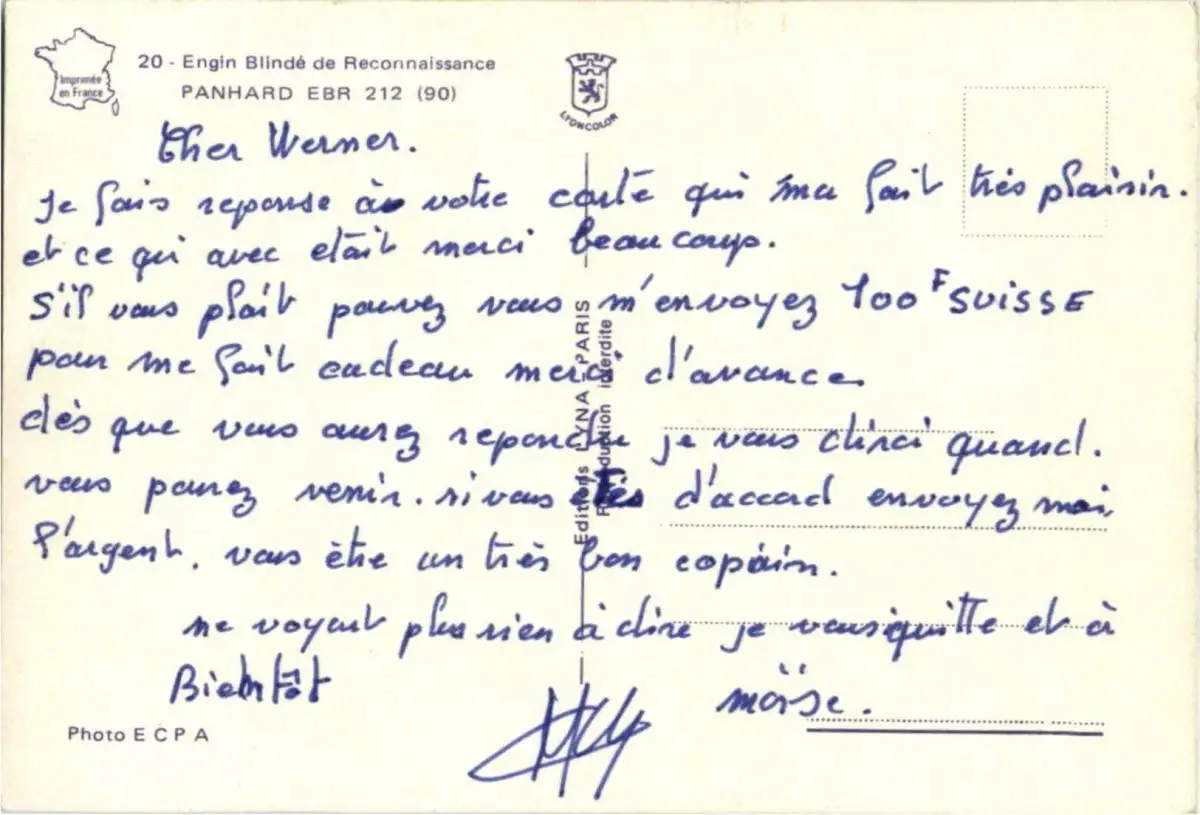 Imprimée
en France
20 - Engin Blindé de Reconnaissance
PANHARD EBR 212 (90)
LYONCOLOR
Cher Werner.
Je fais reponse à votre carte qui ma fait très plaisir.
et ce qui avec etait merci beaucoup.
S'il vous plaît pouvez vous m'envoyez 100 F SUISSE
pour me fait cadeau merci d'avance
dès que vous aurez repondu je vous dirai quand.
vous pouvez venir. si vous êtes d'accord envoyez moi
l'argent. vous être un très bon copain.
ne voyant plus rien à dire je vous quitte et à
Bientôt
moïse.
Editions LYNA - PARIS
Reproduction interdite
Photo E C P A